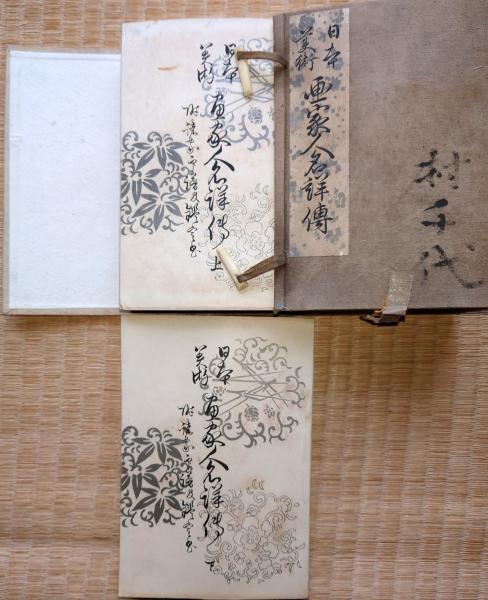 日本
美術
画家人名詳傳
村千代
日本
美術
画家人名詳傳 上
日本
美術
画家人名詳傳 下